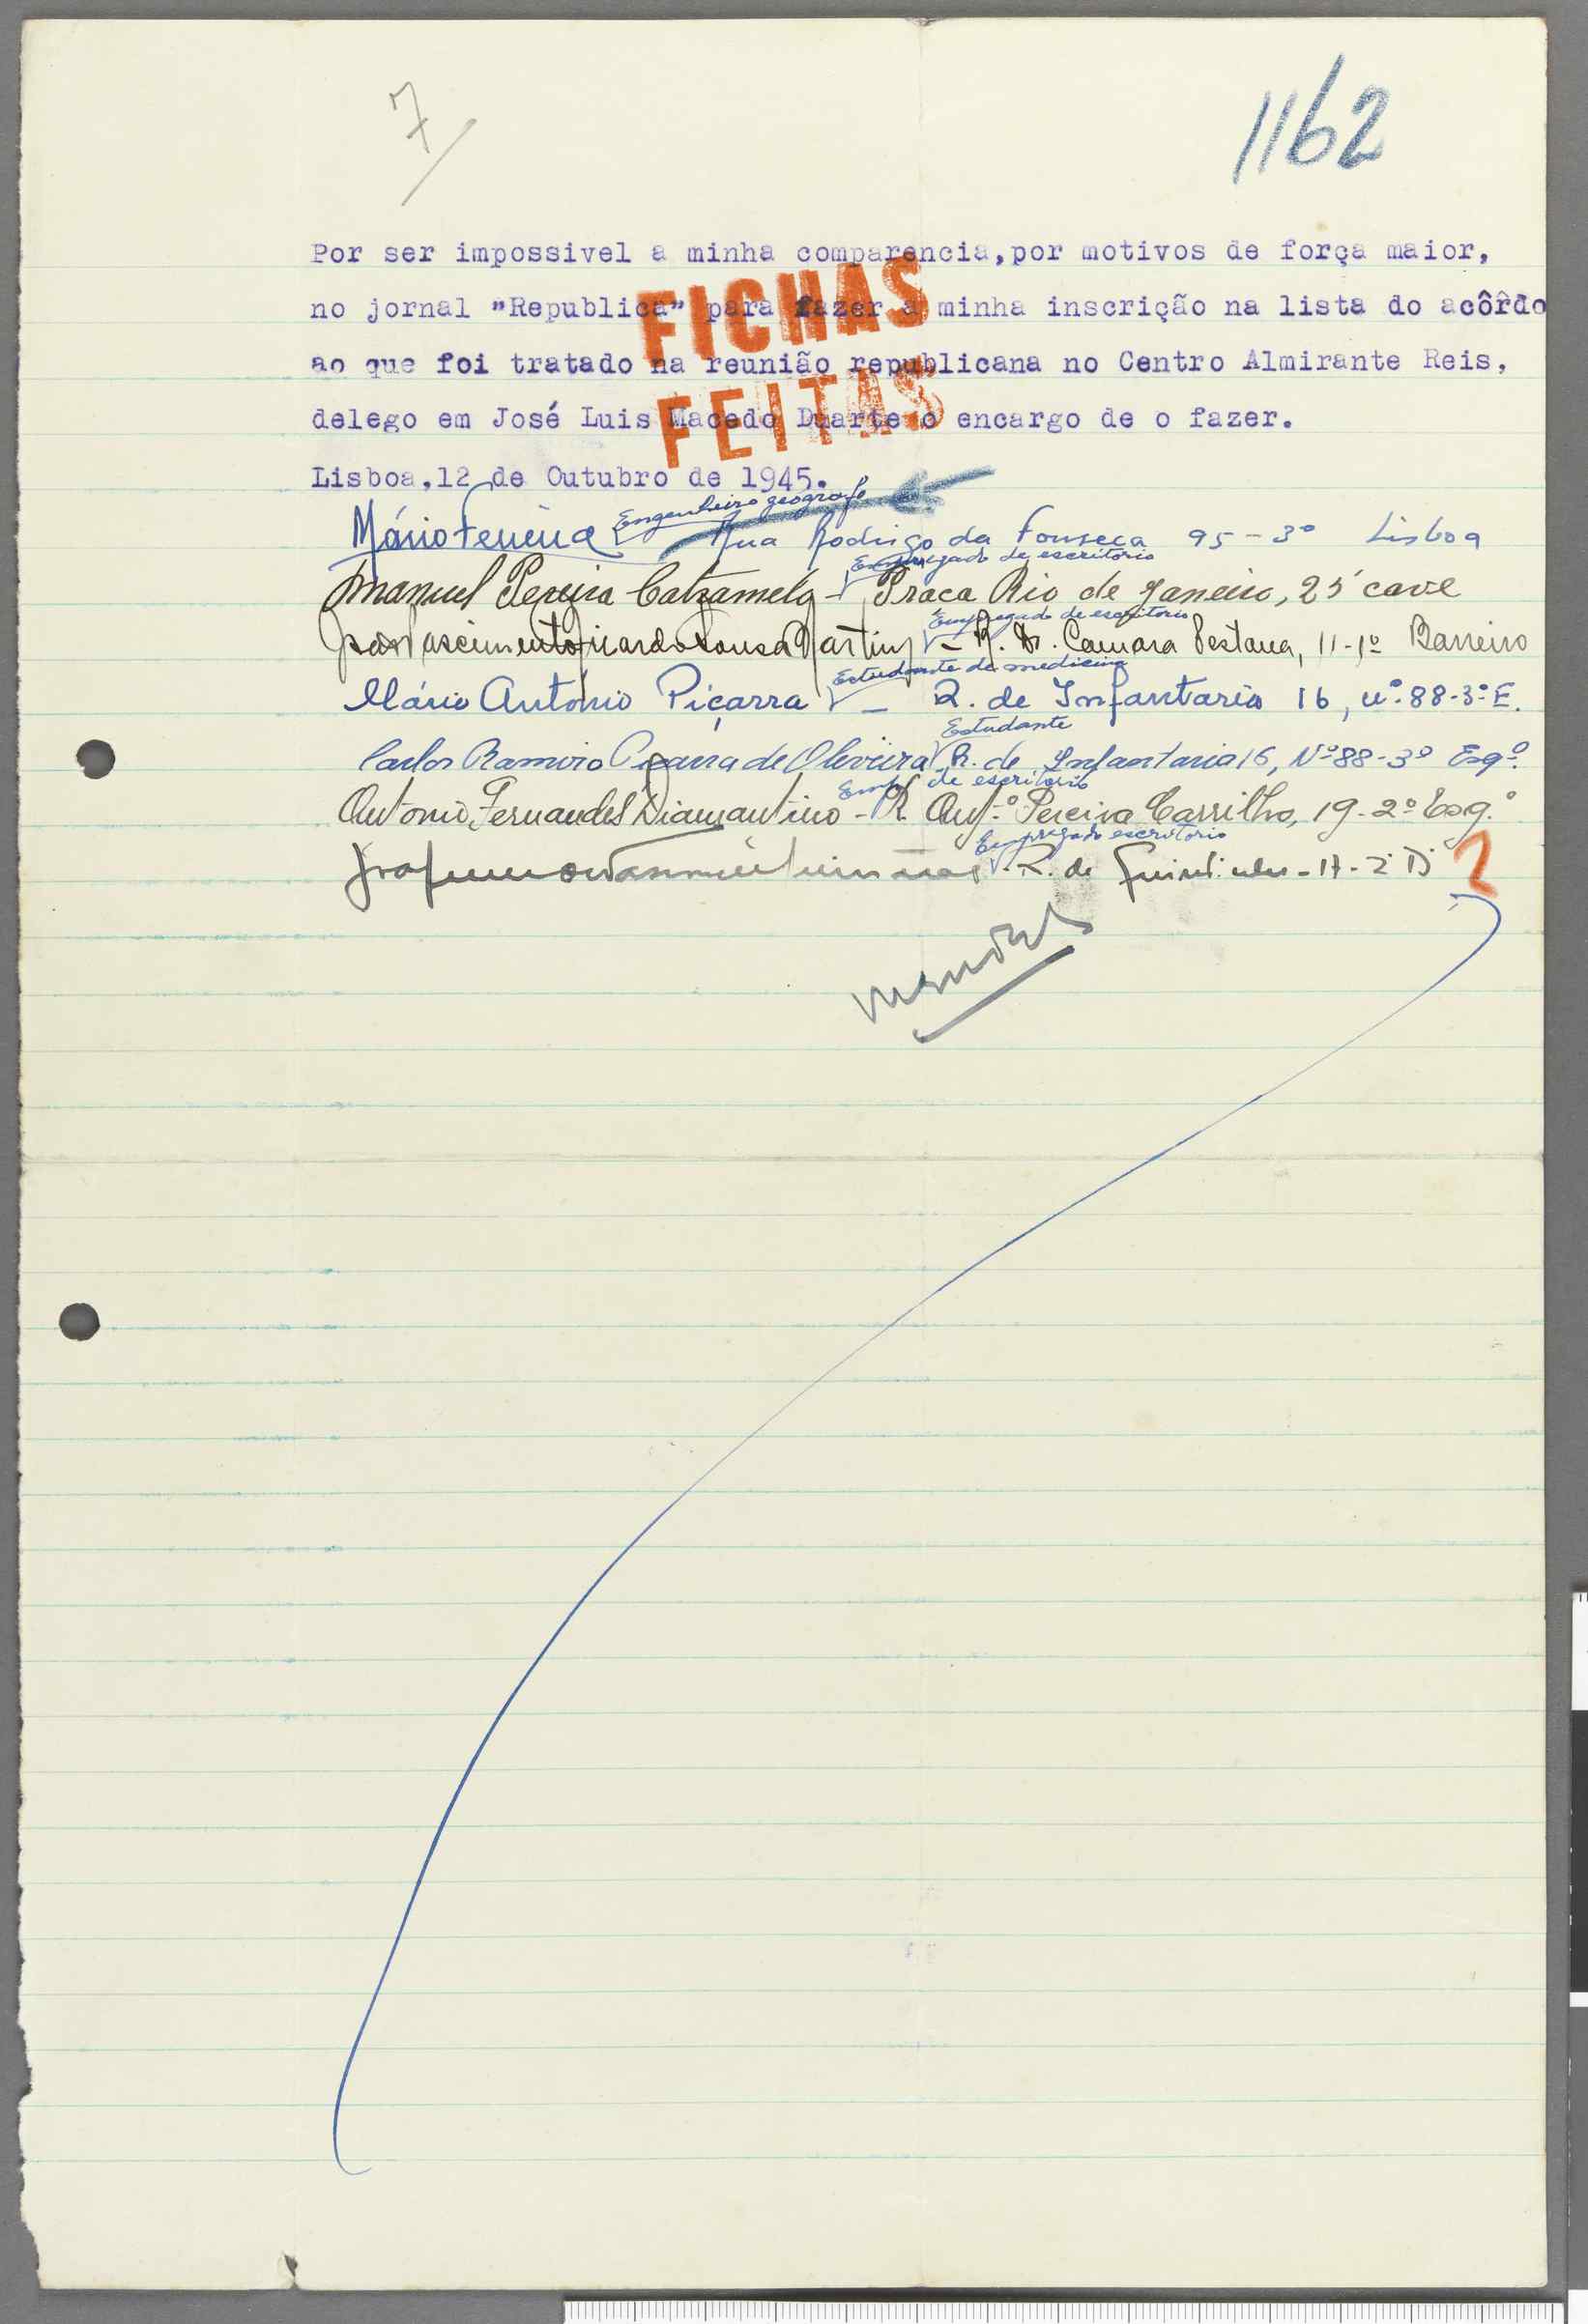 7
1162
Por ser impossivel a minha comparencia,por motivos de força maior,
no jornal "Republica" para fazer a minha inscrição na lista do acôrdo
ao que foi tratado na reunião republicana no Centro Almirante Reis,
delego em José Luis Macedo Duarte o encargo de o fazer.
FICHAS
FEITAS
Lisboa,12 de Outubro de 1945.
Engenheiro geografo
Mário Ferreira Rua Rodrigo da Fonseca 95-3º Lisboa
Empregado de escritorio
Manuel Pereira - Praca Rio de Janeiro, 25 cave
Empregado de escritorio
Nascimento Ricardo Sousa Martins - R. Dr. Camara Pestana, 11-1º Barreiro
Estudante de medicina
Mário António Piçarra - R. de Infantaria 16, nº 88-3º E.
Estudante
Carlos Ramiro Piçarra de Oliveira R. de Infantaria 16, Nº 88-3º Esqº.
Emp. de escritorio
António Fernandes Diamantino - R. Antº Pereira Carrilho, 19-2º Esq.º
Empregado escritorio
R. de